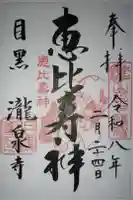 奉拝 令和八年
二月二十四日
恵比寿神
恵比寿神
目黒 瀧泉寺